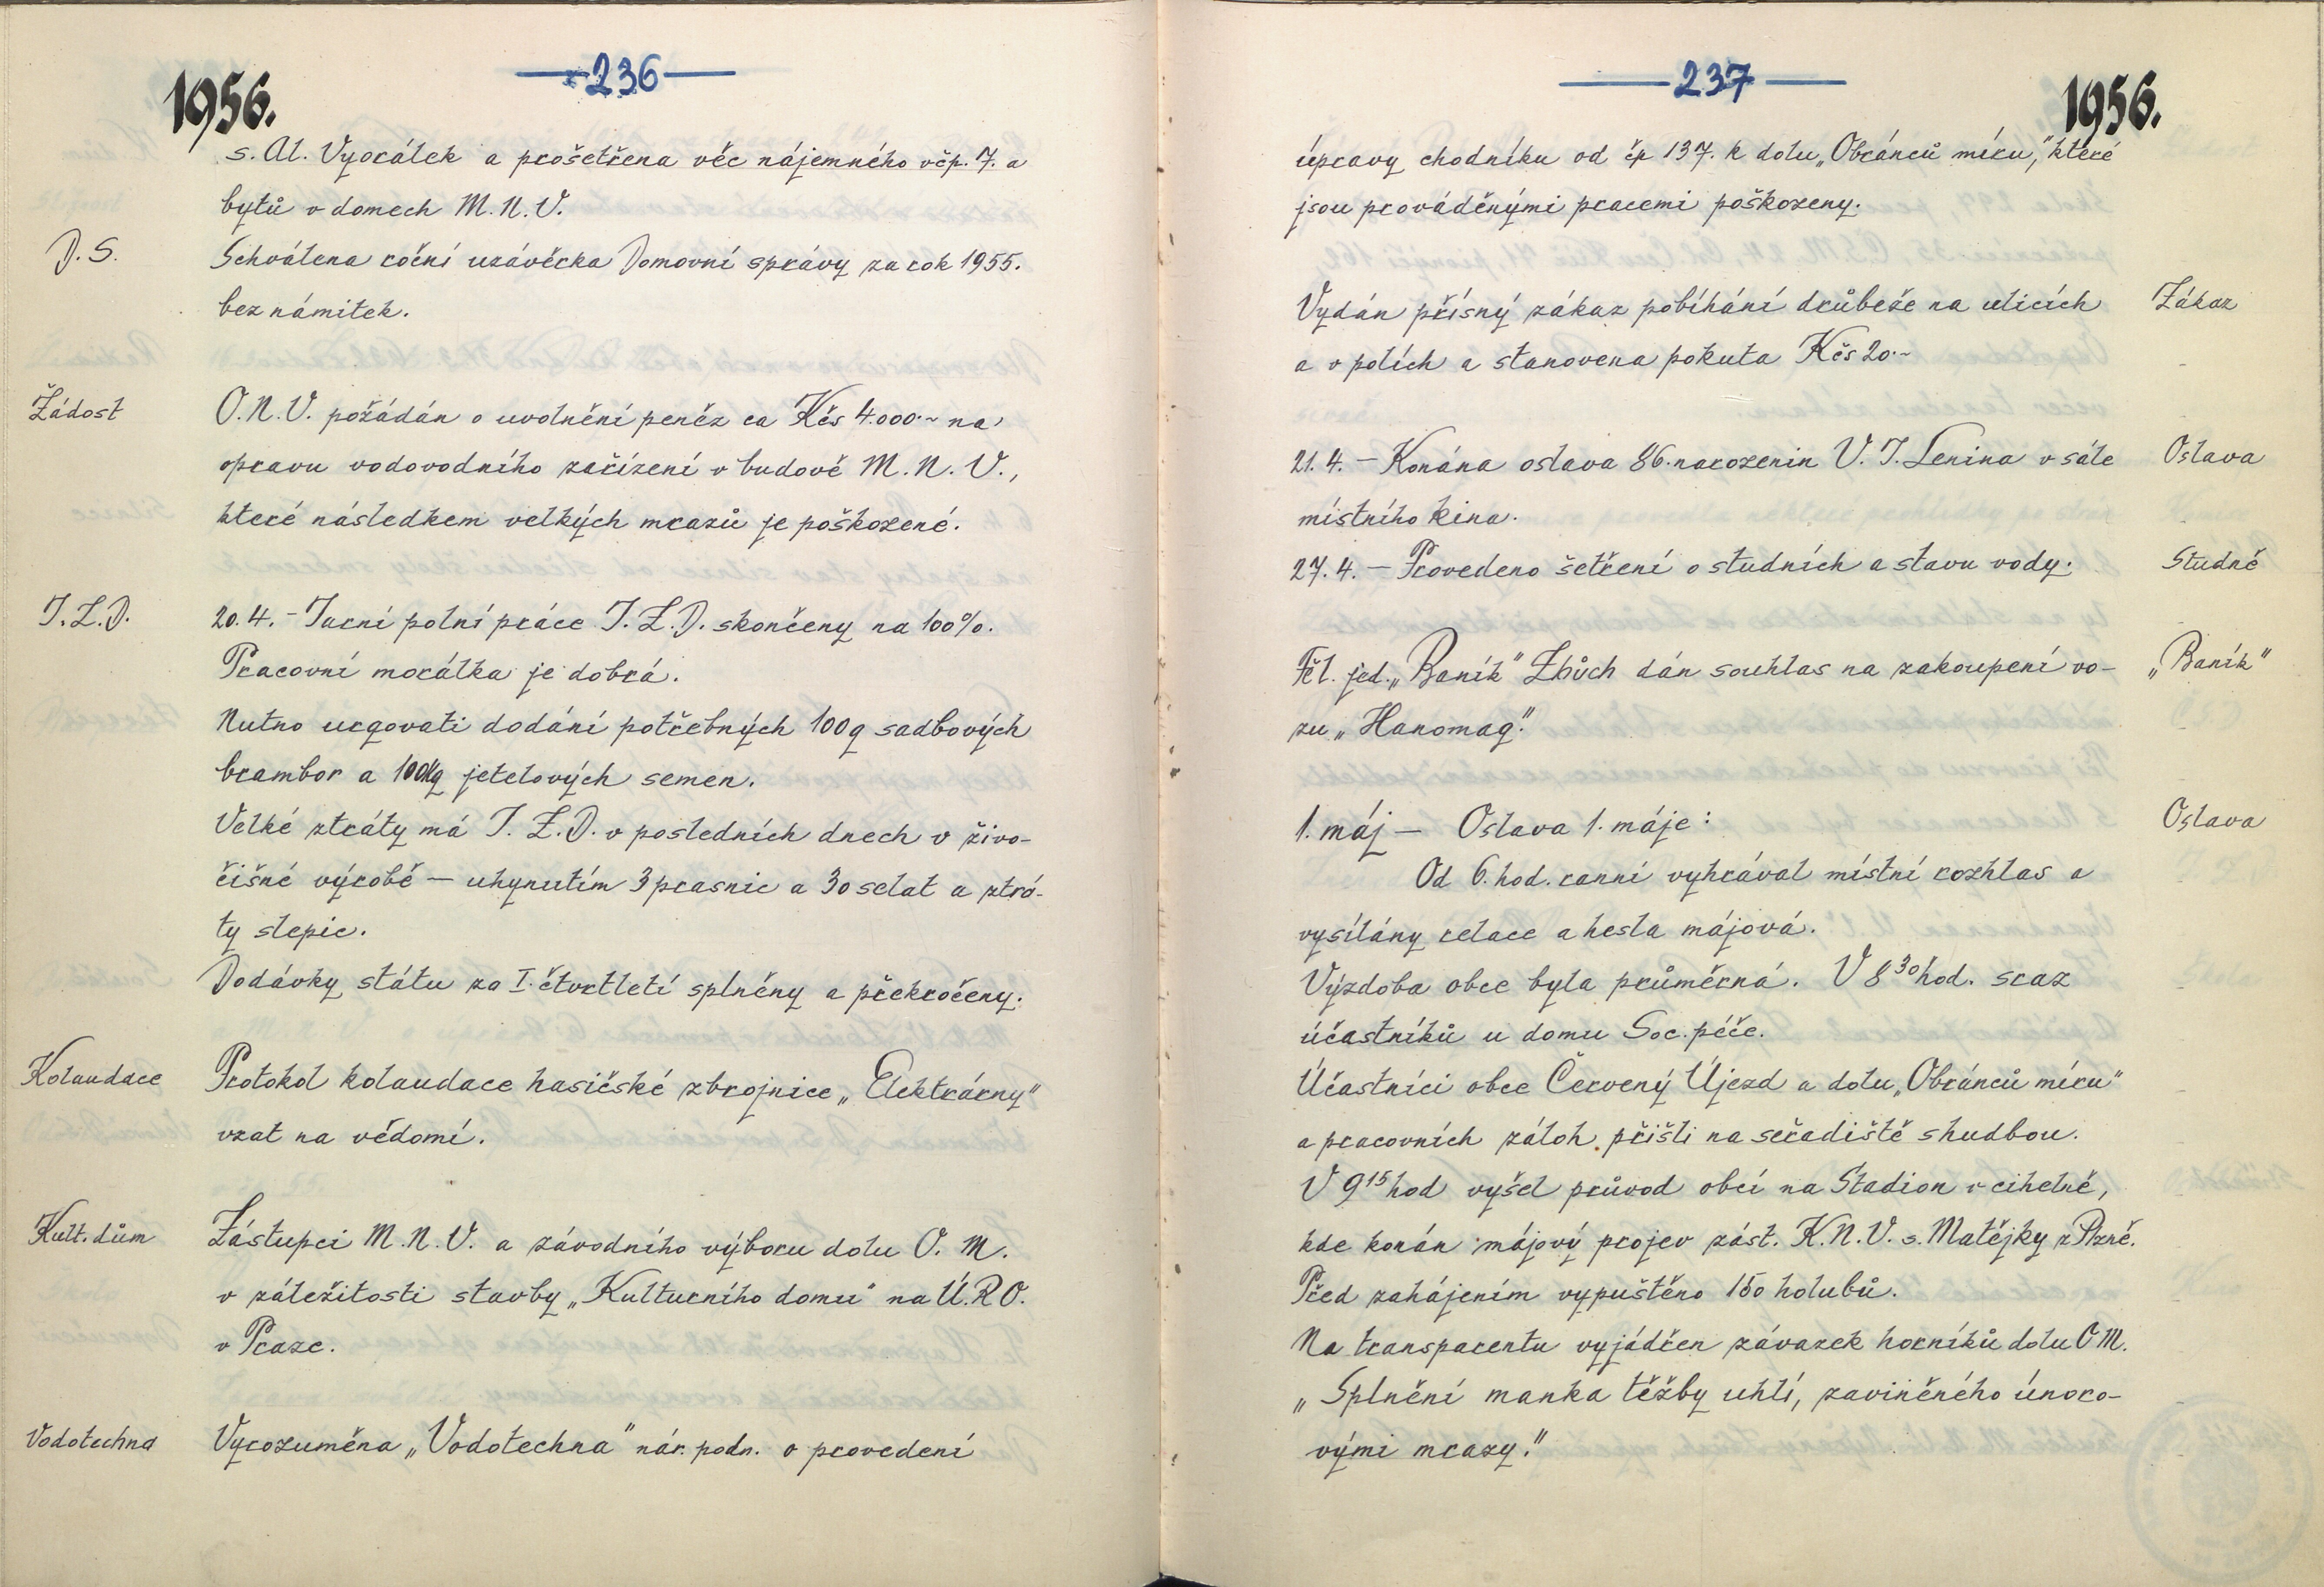 1956.
—236—
s. Al. Vyorálek a prošetřena věc nájemného včp. 7. a
bytů v domech M.N.V.
D.S.
Schválena roční uzávěrka Domovní správy za rok 1955.
bez námitek.
Žádost
O.N.V. požádán o uvolnění peněz ca Kčs 4.000.~ na
opravu vodovodního zařízení v budově M.N.V.,
které následkem velkých mrazů je poškozené.
J.Z.D.
20.4. – Jarní polní práce J.Z.D. skončeny na 100%.
Pracovní morálka je dobrá.
Nutno urgovati dodání potřebných 100q sadbových
brambor a 100kg jetelových semen.
Velké ztráty má J.Z.D. v posledních dnech v živo-
čišné výrobě – uhynutím 3 prasnic a 30 selat a ztrá-
ty slepic.
Dodávky státu za I. čtvrtletí splněny a překročeny.
Kolaudace
Protokol kolaudace hasičské zbrojnice „Elektrárny"
vzat na vědomí.
Kult. dům
Zástupci M.N.V. a závodního výboru dolu O.M.
v záležitosti stavby „Kulturního domu" na Ú.R.O.
v Praze.
Vodotechna
Vyrozuměna „Vodotechna" nár. podn. o provedení
—237—
1956.
úpravy chodníku od čp 137. k dolu „Obránců míru," které
jsou prováděnými pracemi poškozeny.
Vydán přísný zákaz pobíhání drůbeže na ulicích
Zákaz
a v polích a stanovena pokuta Kčs 20.~
21.4. – Konána oslava 86. narozenin V.I. Lenina v sále
Oslava
místního kina.
27.4. – Provedeno šetření o studních a stavu vody.
Studně
Těl. jed. „Baník" Zbůch dán souhlas na zakoupení vo-
„Baník"
zu „Hanomag."
1. máj – Oslava 1. máje:
Oslava
Od 6. hod. ranní vyhrával místní rozhlas a
vysílány relace a hesla májová.
Výzdoba obce byla průměrná. V 8³⁰ hod. sraz
účastníků u domu Soc. péče.
Účastníci obce Červený Újezd a dolu „Obránců míru"
a pracovních záloh přišli na seřadiště s hudbou.
V 9¹⁵ hod vyšel průvod obcí na Stadion v cihelně,
kde konán májový projev zást. K.N.V. s. Matějky z Plzně.
Před zahájením vypuštěno 150 holubů.
Na transparentu vyjádřen závazek horníků dolu O M.
„Splnění manka těžby uhlí, zaviněného únoro-
vými mrazy."